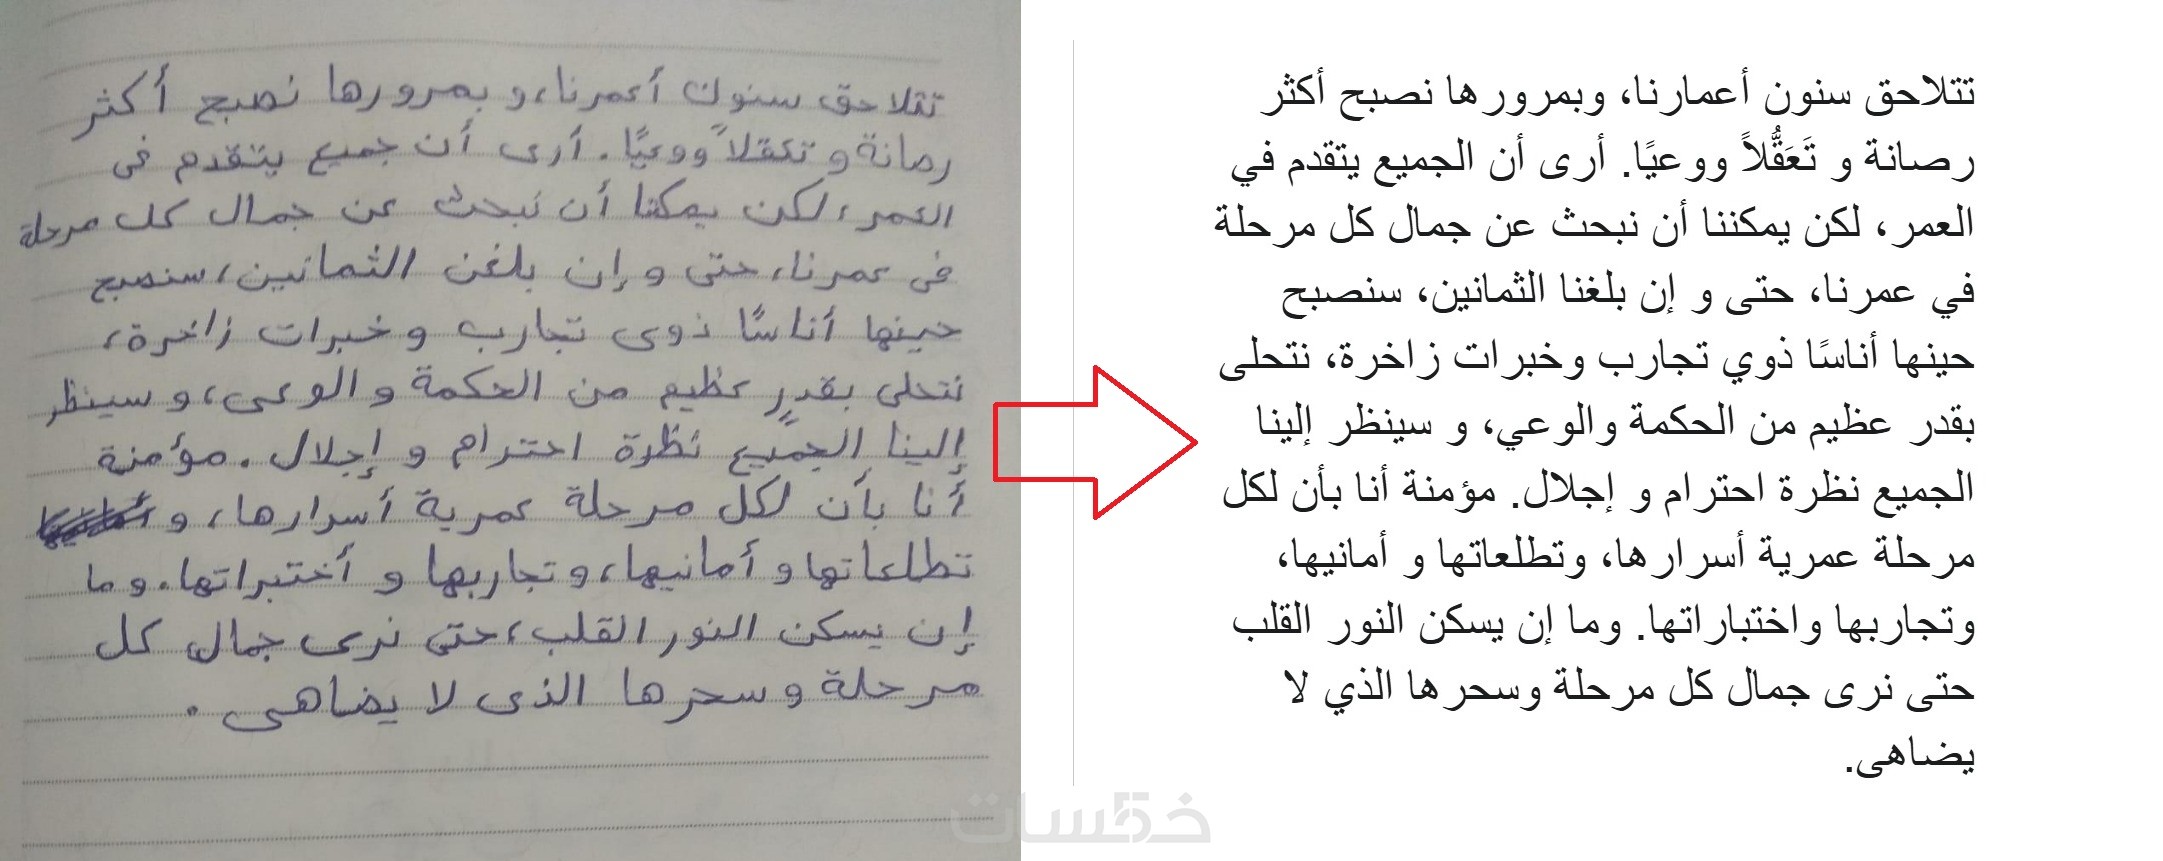 تتلاحق سنون أعمرنا، و بمرورها نصبح أكثر
رصانة و تعقلاً ووعيًا. أرى أن جميع يتقدم فى
العمر، لكن يمكنا أن نبحث عن جمال كل مرحلة
فى عمرنا، حتى و إن بلغن الثمانين، سنصبح
حينها أناسًا ذوى تجارب و خبرات زاخرة،
نتحلى بقدرٍ عظيم من الحكمة و الوعى، و سينظر
إلينا الجميع نظرة احترام و إجلال. مؤمنة
أنا بأن لكل مرحلة عمرية أسرارها، و
تطلعاتها و أمانيها، و تجاربها و أختبراتها. و ما
إن يسكن النور القلب، حتى نرى جمال كل
مرحلة و سحرها الذى لا يضاهى.
تتلاحق سنون أعمارنا، وبمرورها نصبح أكثر
رصانة و تَعَقُّلاً ووعيًا. أرى أن الجميع يتقدم في
العمر، لكن يمكننا أن نبحث عن جمال كل مرحلة
في عمرنا، حتى و إن بلغنا الثمانين، سنصبح
حينها أناسًا ذوي تجارب وخبرات زاخرة، نتحلى
بقدر عظيم من الحكمة والوعي، و سينظر إلينا
الجميع نظرة احترام و إجلال. مؤمنة أنا بأن لكل
مرحلة عمرية أسرارها، وتطلعاتها و أمانيها،
وتجاربها واختباراتها. وما إن يسكن النور القلب
حتى نرى جمال كل مرحلة وسحرها الذي لا
يضاهى.
خمسات